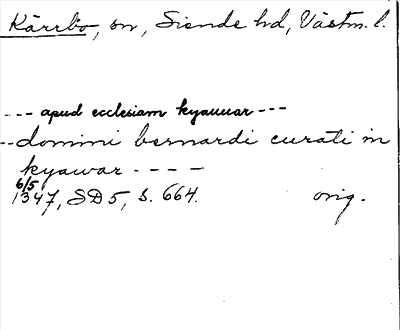 Kärrbo, sn, Siende hd, Västm. l.
--- apud ecclesiam kyauuar ---
--domini bernardi curati in
kyawar ----
6/5
1347, SD 5, s. 664. orig.